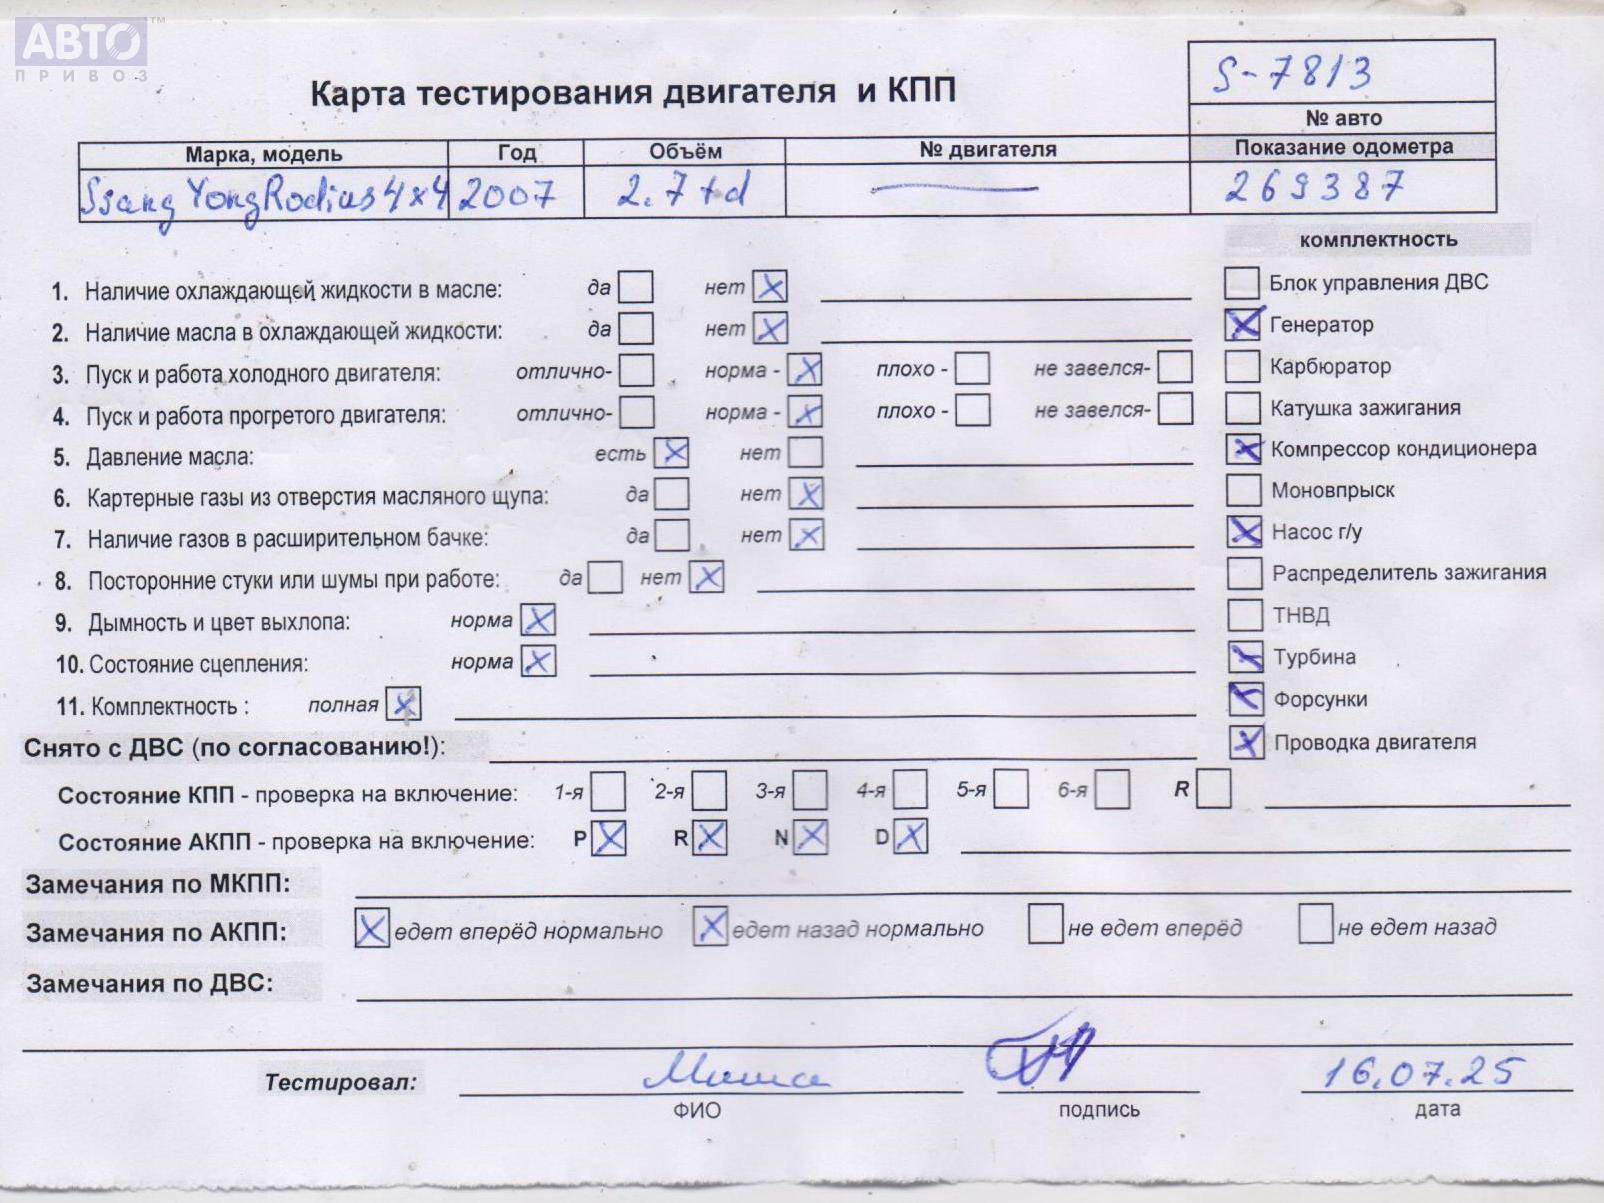 АВТО ™
ПРИВОЗ
S-7813
Карта тестирования двигателя и КПП
№ авто
Марка, модель Год Объём № двигателя Показание одометра
SsangYongRodius4x4 2007 2.7td 269387
комплектность
1. Наличие охлаждающей жидкости в масле: да нет
Блок управления ДВС
2. Наличие масла в охлаждающей жидкости: да нет
Генератор
3. Пуск и работа холодного двигателя: отлично- норма - плохо - не завелся-
Карбюратор
4. Пуск и работа прогретого двигателя: отлично- норма - плохо - не завелся-
Катушка зажигания
5. Давление масла: есть нет
Компрессор кондиционера
6. Картерные газы из отверстия масляного щупа: да нет
Моновпрыск
7. Наличие газов в расширительном бачке: да нет
Насос г/у
8. Посторонние стуки или шумы при работе: да нет
Распределитель зажигания
9. Дымность и цвет выхлопа: норма
ТНВД
10. Состояние сцепления: норма
Турбина
11. Комплектность : полная
Форсунки
Снято с ДВС (по согласованию!):
Проводка двигателя
Состояние КПП - проверка на включение: 1-я 2-я 3-я 4-я 5-я 6-я R
Состояние АКПП - проверка на включение: P R N D
Замечания по МКПП:
Замечания по АКПП: едет вперёд нормально едет назад нормально не едет вперёд не едет назад
Замечания по ДВС:
Тестировал: Миша 16.07.25
ФИО подпись дата